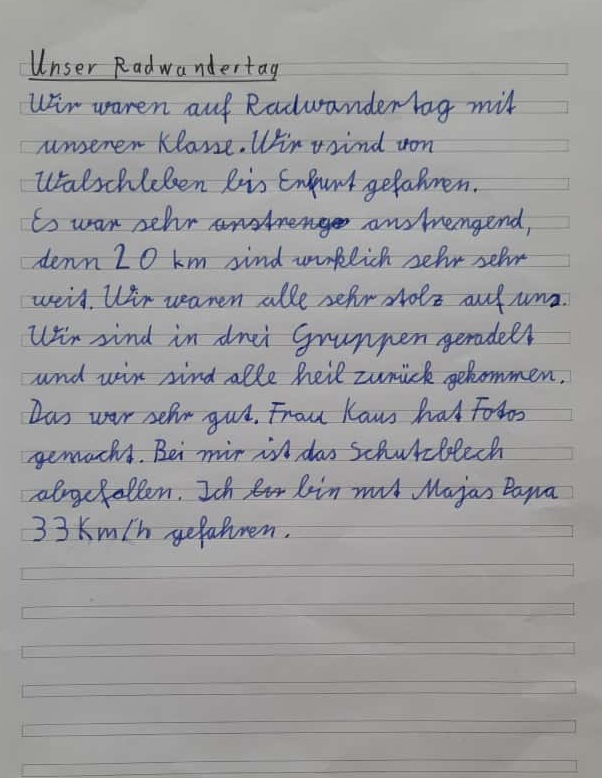 Unser Radwandertag
Wir waren auf Radwandertag mit
unserer Klasse. Wir sind von
Walschleben bis Erfurt gefahren.
Es war sehr anstreng anstrengend,
denn 20 km sind wirklich sehr sehr
weit. Wir waren alle sehr stolz auf uns.
Wir sind in drei Gruppen geradelt
und wir sind alle heil zurück gekommen.
Das war sehr gut. Frau Kaus hat Fotos
gemacht. Bei mir ist das Schutzblech
abgefallen. Ich bin mit Majas Papa
33 Km/h gefahren.